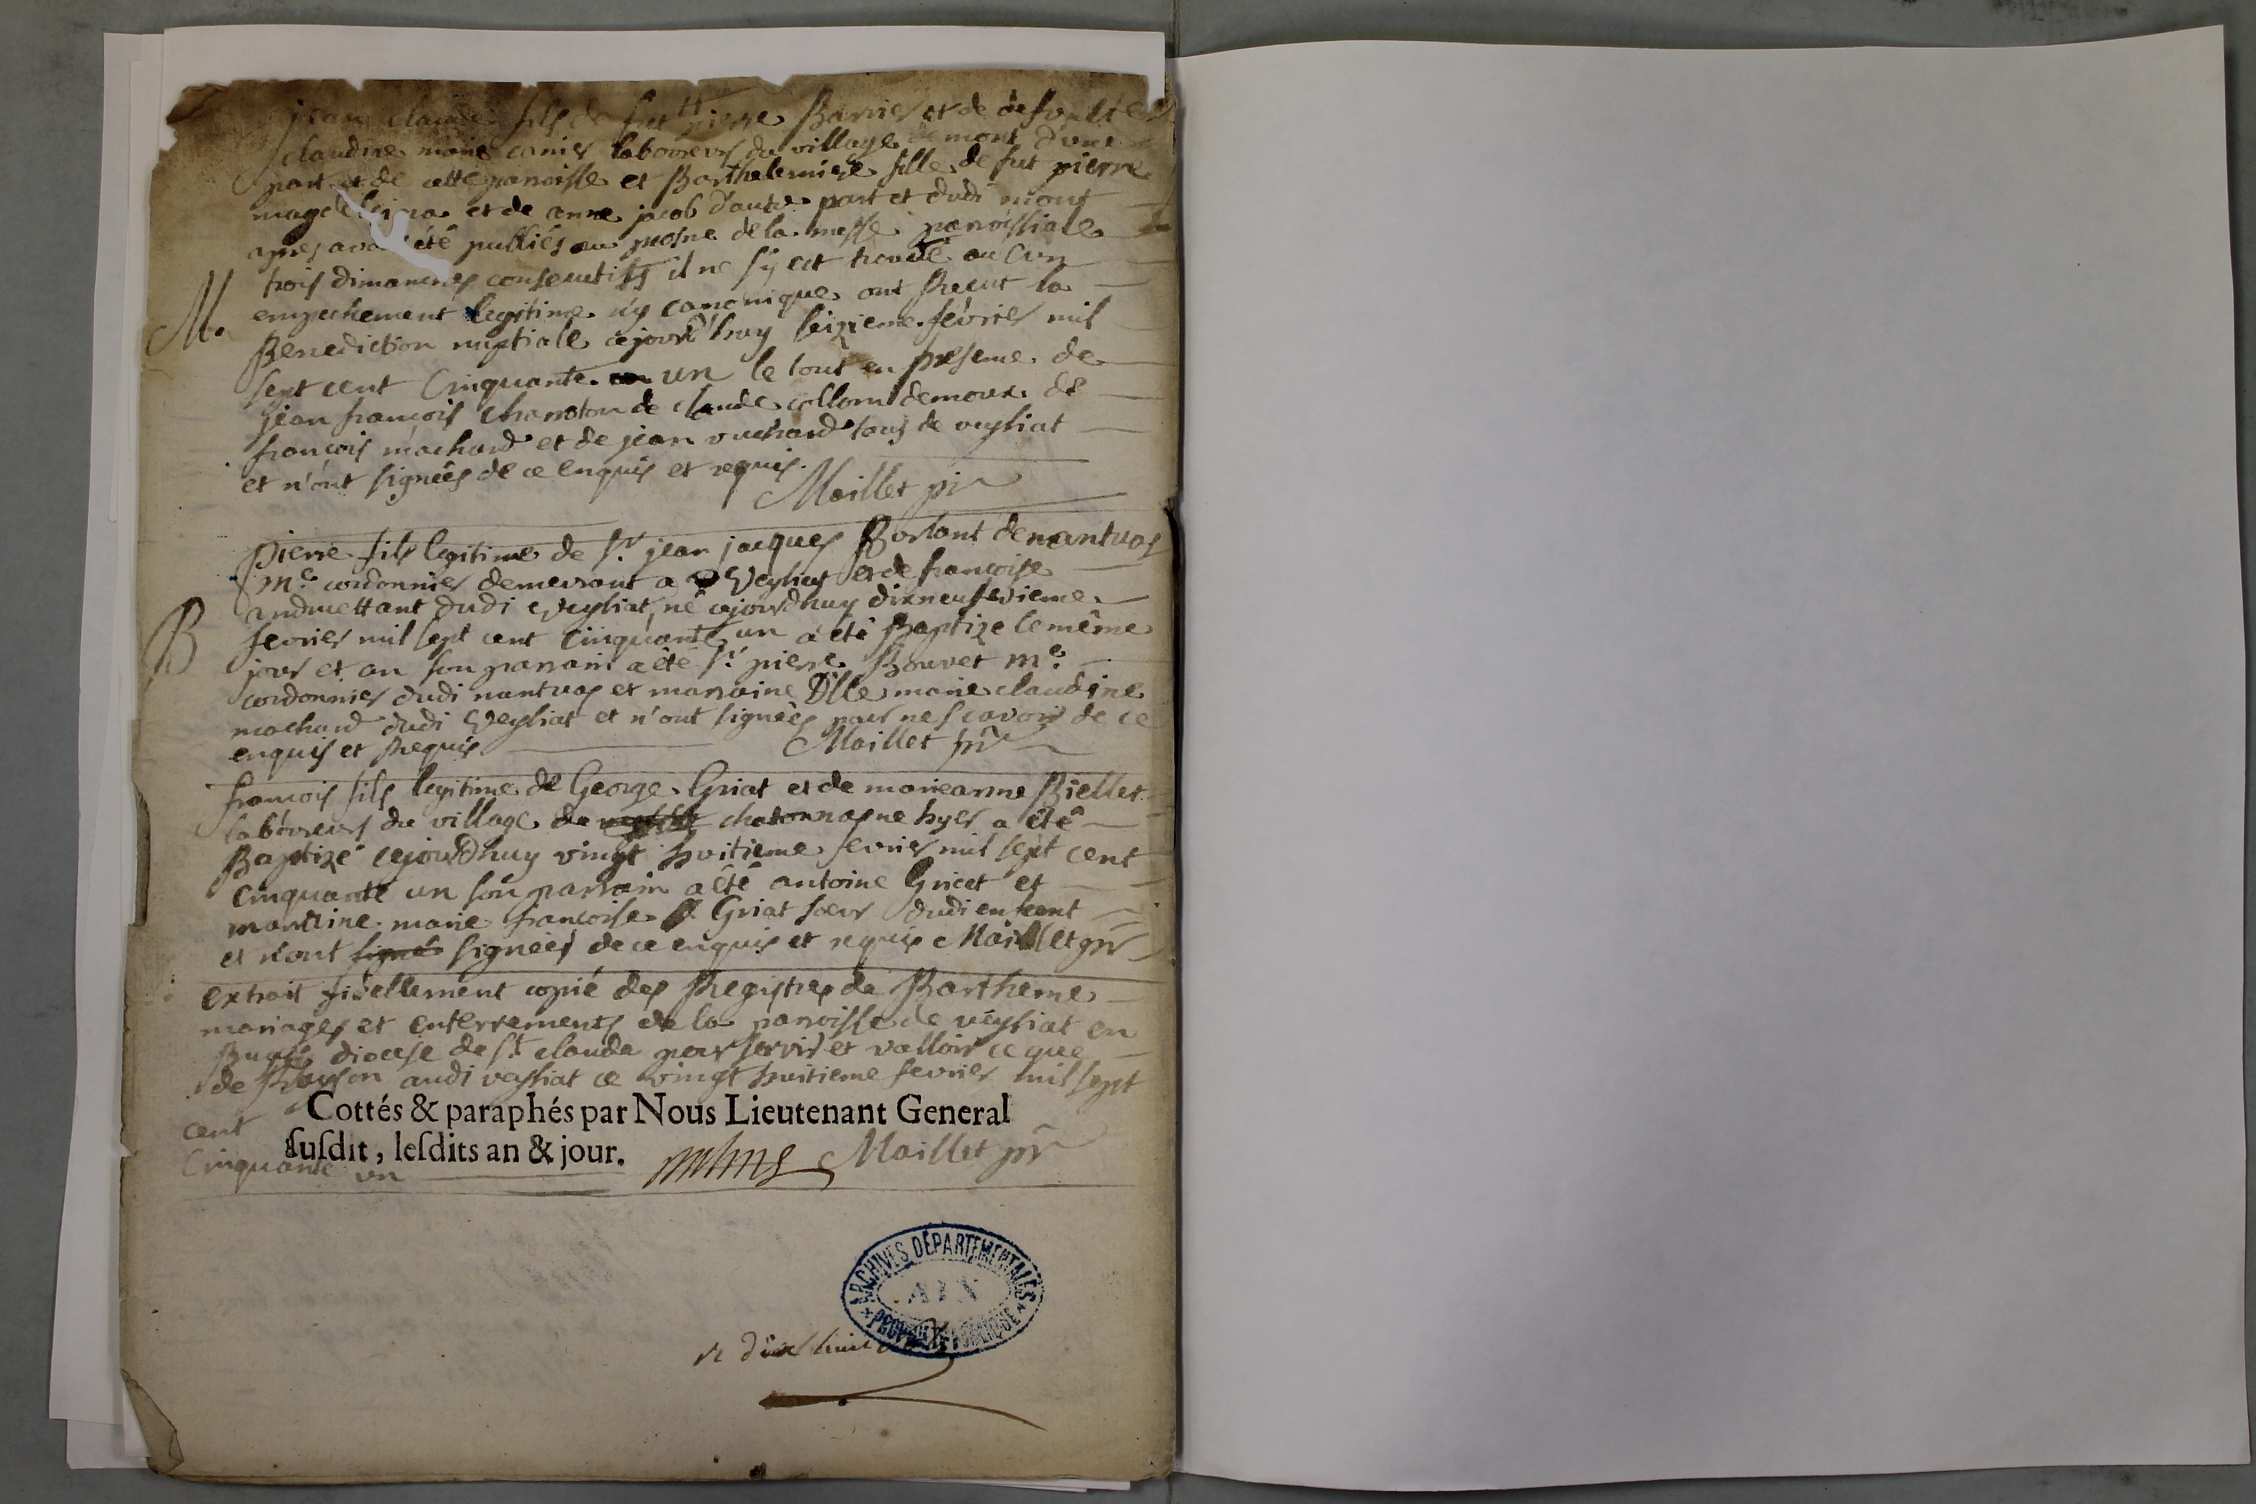 jean claude fils de fut pierre Barrier et de defunte
claudine marie canier laboureurs du village de mont d'une
part et de cette paroisse et Barthelemise fille de fut pierre
et de anne jacob d'autre part et dudi mont
apres avoir été publiés au prosne de la messe paroissiale
trois dimanches consecutifs il ne s'y est trouvé aucun
M.
empechement legitime n'y canonique ont Recut la
Benediction nuptiale cejourd'huy seizieme février mil
sept cent Cinquante un le tout en presence de
jean françois Charroton de claude collom demoux de
françois machard et de jean vuchard tous de veysiat
et n'ont signées de ce enquis et requis.
Maillet pr
Pierre fils legitime de Sr. jean jacques Borsant de nantuas
me. cordonnier demeurant a Veysiat et de françoise
andruettant dudi Veysiat, né cejourdhuy dixneufvieme
B
fevrier mil sept cent cinquante un a été Baptize le même
jour et an son parrain a été Sr. pierre Bouvet me.
cordonnier dudi nantuas et marraine Dlle marie claudine
machard dudi Veysiat et n'ont signées pour ne scavoir de ce
enquis et Requis
Maillet pr
françois fils legitime de George Griat et de marieanne Biellet
laboureurs du village de chatonnas né hyer a été
Baptizé cejourdhuy vingt huitieme fevrier mil sept cent
Cinquante un son parrain a été antoine Gricet et
marraine marie françoise Griat soeur dudi enfent
et n'ont signés signées de ce enquis et requis Maillet pr
extrait fidellement copié des Registres de Bartheme
mariages et enterrements de la paroisse de veysiat en
diocese de St claude pour servir et valloir ce que
de Raison audi veysiat ce vingt huitieme fevrier mil sept
cent
Cottés & paraphés par Nous Lieutenant General
susdit, lesdits an & jour.
Cinquante un
Maillet pr
ARCHIVES DÉPARTEMENTALES
AIN
PROPRIÉTÉ PUBLIQUE